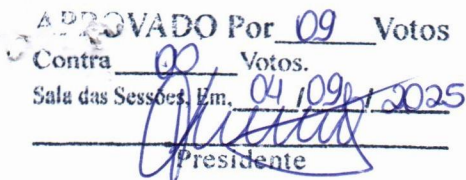 APROVADO Por 09 Votos
Contra 00 Votos.
Sala das Sessões, Em, 04 / 09 / 2025
Presidente